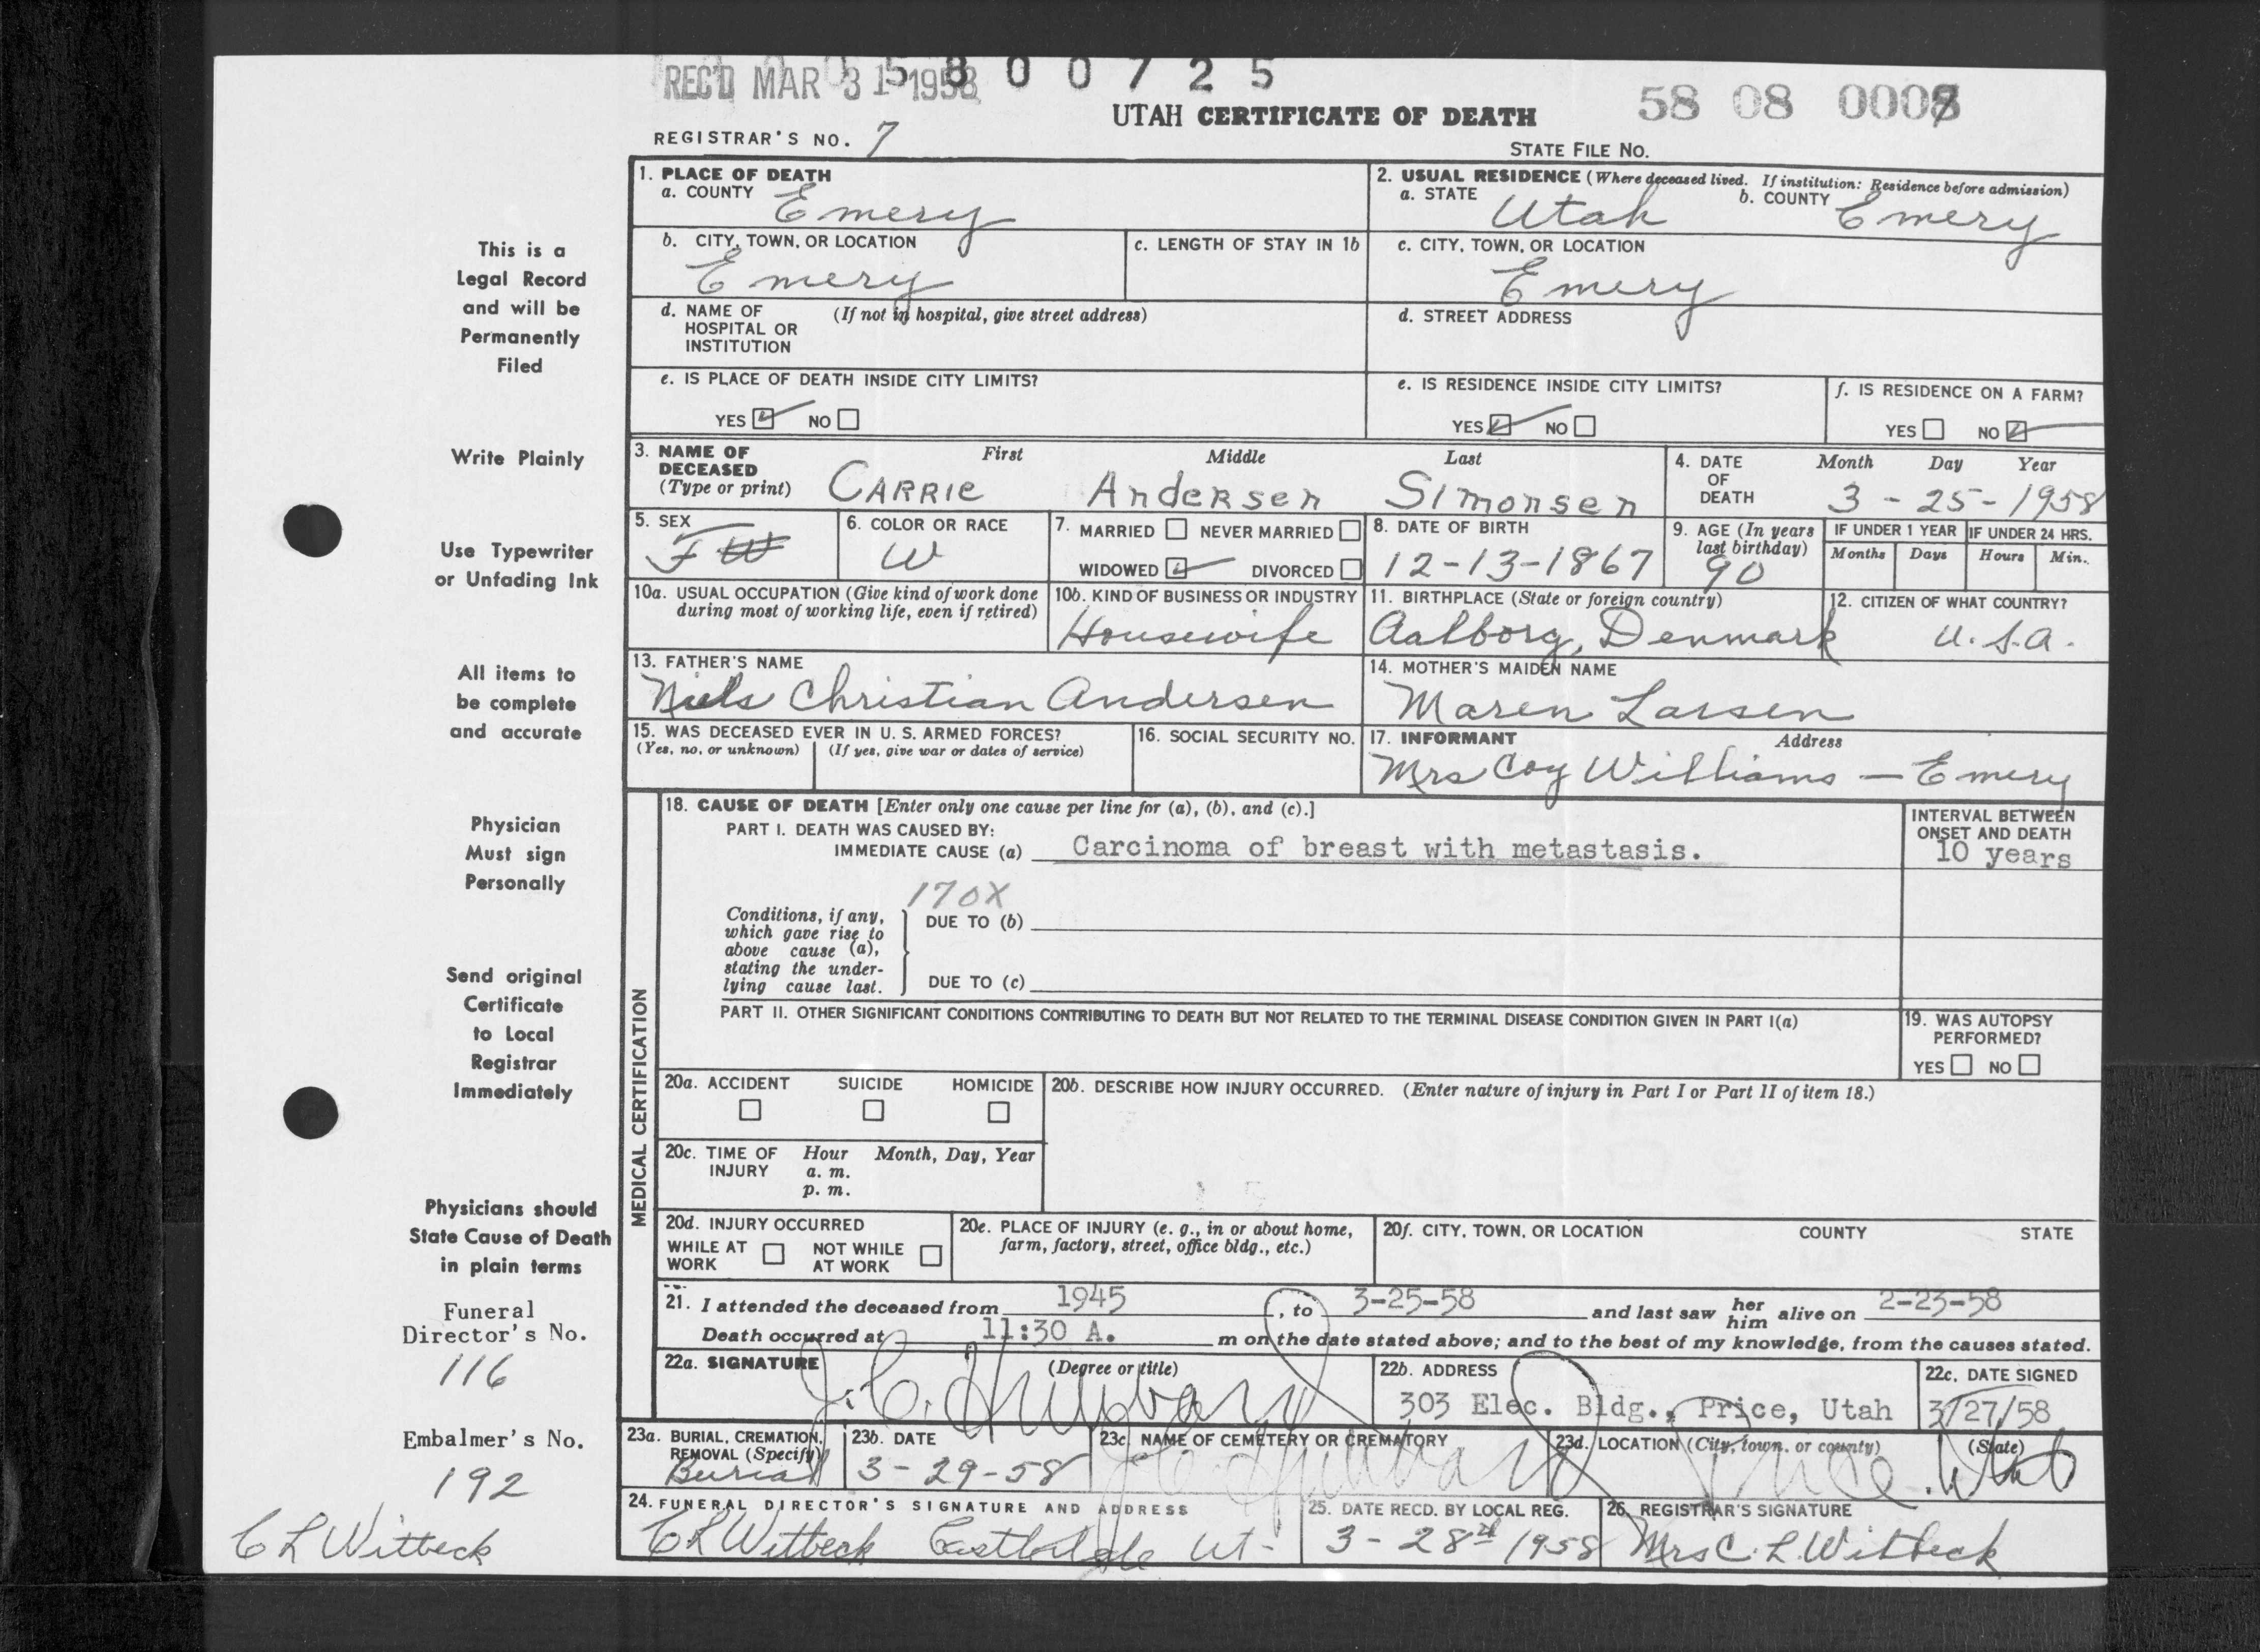 REC'D MAR 31 1958
5 8 0 0 7 2 5
UTAH CERTIFICATE OF DEATH
58 08 000
REGISTRAR'S NO. 7
STATE FILE NO.
1. PLACE OF DEATH
a. COUNTY Emery
2. USUAL RESIDENCE (Where deceased lived. If institution: Residence before admission)
a. STATE Utah b. COUNTY Emery
b. CITY, TOWN, OR LOCATION Emery
c. LENGTH OF STAY IN 1b
c. CITY, TOWN, OR LOCATION Emery
d. NAME OF HOSPITAL OR INSTITUTION (If not in hospital, give street address)
d. STREET ADDRESS
e. IS PLACE OF DEATH INSIDE CITY LIMITS?
YES NO
e. IS RESIDENCE INSIDE CITY LIMITS?
YES NO
f. IS RESIDENCE ON A FARM?
YES NO
3. NAME OF DECEASED (Type or print)
First Middle Last
CARRIE Andersen Simonsen
4. DATE OF DEATH
Month Day Year
3 - 25 - 1958
5. SEX
F W
6. COLOR OR RACE
W
7. MARRIED NEVER MARRIED
WIDOWED DIVORCED
8. DATE OF BIRTH
12-13-1867
9. AGE (In years last birthday)
90
IF UNDER 1 YEAR
Months Days
IF UNDER 24 HRS.
Hours Min.
10a. USUAL OCCUPATION (Give kind of work done during most of working life, even if retired)
10b. KIND OF BUSINESS OR INDUSTRY
Housewife
11. BIRTHPLACE (State or foreign country)
Aalborg, Denmark
12. CITIZEN OF WHAT COUNTRY?
U.S.A.
13. FATHER'S NAME
Niels Christian Andersen
14. MOTHER'S MAIDEN NAME
Maren Larsen
15. WAS DECEASED EVER IN U. S. ARMED FORCES?
(Yes, no, or unknown) (If yes, give war or dates of service)
16. SOCIAL SECURITY NO.
17. INFORMANT Address
Mrs Coy Williams - Emery
MEDICAL CERTIFICATION
18. CAUSE OF DEATH [Enter only one cause per line for (a), (b), and (c).]
PART I. DEATH WAS CAUSED BY:
IMMEDIATE CAUSE (a) Carcinoma of breast with metastasis.
INTERVAL BETWEEN ONSET AND DEATH
10 years
170X
Conditions, if any, which gave rise to above cause (a), stating the underlying cause last.
DUE TO (b)
DUE TO (c)
PART II. OTHER SIGNIFICANT CONDITIONS CONTRIBUTING TO DEATH BUT NOT RELATED TO THE TERMINAL DISEASE CONDITION GIVEN IN PART I(a)
19. WAS AUTOPSY PERFORMED?
YES NO
20a. ACCIDENT SUICIDE HOMICIDE
20b. DESCRIBE HOW INJURY OCCURRED. (Enter nature of injury in Part I or Part II of item 18.)
20c. TIME OF INJURY Hour Month, Day, Year
a. m.
p. m.
20d. INJURY OCCURRED
WHILE AT WORK NOT WHILE AT WORK
20e. PLACE OF INJURY (e. g., in or about home, farm, factory, street, office bldg., etc.)
20f. CITY, TOWN, OR LOCATION COUNTY STATE
21. I attended the deceased from 1945, to 3-25-58 and last saw her him alive on 2-23-58
Death occurred at 11:30 A. m on the date stated above; and to the best of my knowledge, from the causes stated.
22a. SIGNATURE (Degree or title)
J. C. Hubbard
22b. ADDRESS
303 Elec. Bldg., Price, Utah
22c. DATE SIGNED
3/27/58
23a. BURIAL, CREMATION, REMOVAL (Specify)
Burial
23b. DATE
3-29-58
23c. NAME OF CEMETERY OR CREMATORY
J C Hubbard
23d. LOCATION (City, town, or county) (State)
Price, Utah
24. FUNERAL DIRECTOR'S SIGNATURE AND ADDRESS
C L Witbeck Castledale Ut-
25. DATE RECD. BY LOCAL REG.
3 - 28 1958
26. REGISTRAR'S SIGNATURE
Mrs C. L. Witbeck
This is a
Legal Record
and will be
Permanently
Filed
Write Plainly
Use Typewriter
or Unfading Ink
All items to
be complete
and accurate
Physician
Must sign
Personally
Send original
Certificate
to Local
Registrar
Immediately
Physicians should
State Cause of Death
in plain terms
Funeral
Director's No.
116
Embalmer's No.
192
C L Witbeck